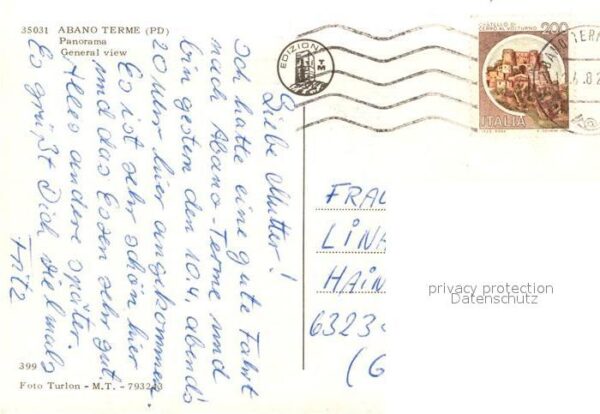 35031 ABANO TERME (PD)
Panorama
General view
Liebe Mutter!
Ich hatte eine gute Fahrt
nach Abano-Terme und
bin gestern den 10 4. abends
20 Uhr hier angekommen.
Es ist sehr schön hier
und das Essen sehr gut.
Alles andere später.
Es grüßt Dich vielmals
Fritz
399
Foto Turlon - M.T. -
EDIZIONE
TM
CASTELLO DI
CERRO AL VOLTURNO
200
ITALIA
FRAU
LINA
HAIN
6323
(G
privacy protection
Datenschutz